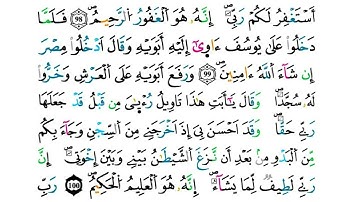 أَسْتَغْفِرُ لَكُمْ رَبِّيٓ ۖ إِنَّهُۥ هُوَ ٱلْغَفُورُ ٱلرَّحِيمُ 98 فَلَمَّا
دَخَلُوا۟ عَلَىٰ يُوسُفَ ءَاوَىٰٓ إِلَيْهِ أَبَوَيْهِ وَقَالَ ٱدْخُلُوا۟ مِصْرَ
إِن شَآءَ ٱللَّهُ ءَامِنِينَ 99 وَرَفَعَ أَبَوَيْهِ عَلَى ٱلْعَرْشِ وَخَرُّوا۟
لَهُۥ سُجَّدًا ۖ وَقَالَ يَٰٓأَبَتِ هَٰذَا تَأْوِيلُ رُءْيَٰىَ مِن قَبْلُ قَدْ جَعَلَهَا
رَبِّي حَقًّا ۖ وَقَدْ أَحْسَنَ بِيٓ إِذْ أَخْرَجَنِي مِنَ ٱلسِّجْنِ وَجَآءَ بِكُم
مِّنَ ٱلْبَدْوِ مِنۢ بَعْدِ أَن نَّزَغَ ٱلشَّيْطَٰنُ بَيْنِي وَبَيْنَ إِخْوَتِيٓ ۚ إِنَّ
رَبِّي لَطِيفٌ لِّمَا يَشَآءُ ۚ إِنَّهُۥ هُوَ ٱلْعَلِيمُ ٱلْحَكِيمُ 100 رَبِّ